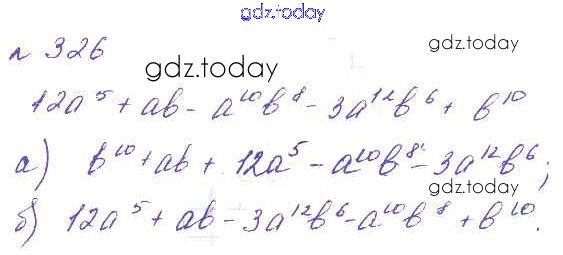 gdz.today
№ 326 gdz.today
gdz.today
12a⁵ + ab - a¹⁰b⁸ - 3a¹²b⁶ + b¹⁰
а) b¹⁰ + ab + 12a⁵ - a¹⁰b⁸ - 3a¹²b⁶;
gdz.today
б) 12a⁵ + ab - 3a¹²b⁶ - a¹⁰b⁸ + b¹⁰.